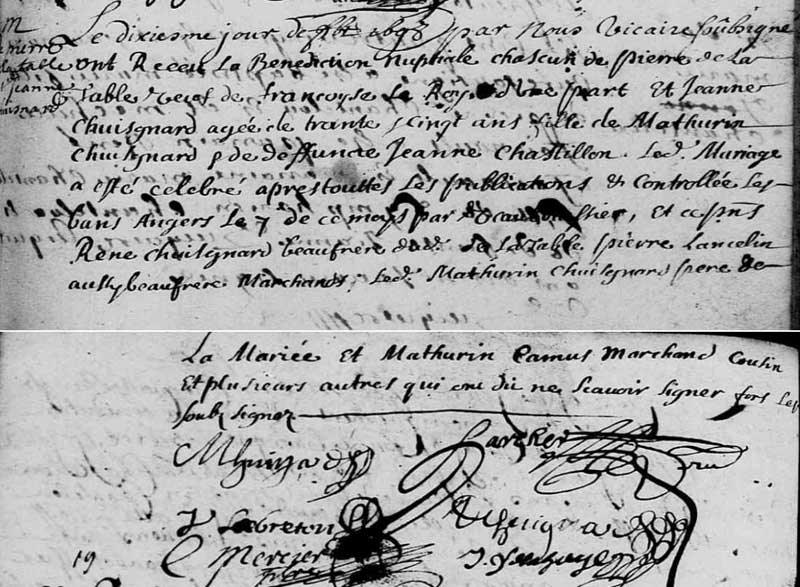 M
pierre
Latable
et jeanne
Chuisgnard
Le dixiesme jour de 1698 par Nous Vicaire soubsigné
ont Receu La Benediction Nuptialle chascun de pierre de La
Table veuf de francoyse Le Roy d'une part Et Jeanne
Chuisgnard agée de trante cinq ans fille de Mathurin
Chuisgnard & de deffuncte Jeanne Chastillon. Led. Mariage
a esté celebré apres touttes Les publications & Controllée Les
bans Angers Le 7 de ce moys par Et en pns
René Chuisgnard beaufrere dud. de La Table pierre Lancelin
aussy beaufrere Marchands, Led. Mathurin Chuisgnard pere de
La Mariée Et Mathurin Camus Marchand Cousin
Et plusieurs autres qui ont dit ne Scavoir signer fors Les
soub signez
Mhuigna
Larcher
J Lebreton
Mercier
19